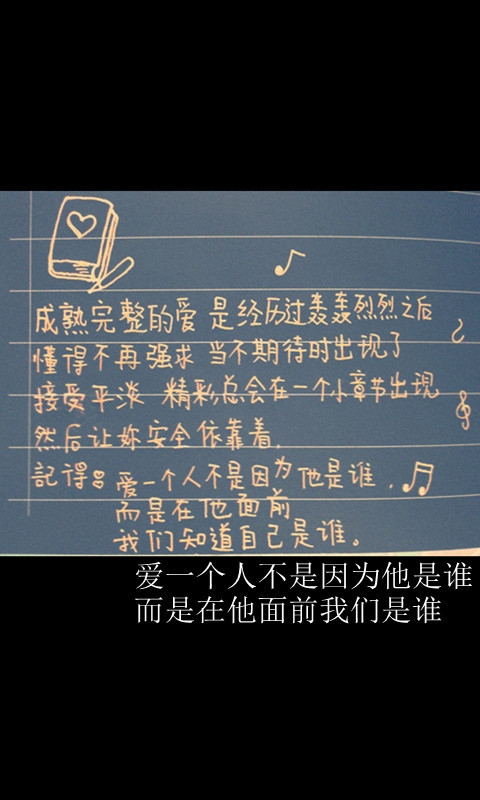 成熟完整的爱 是经历过轰轰烈烈之后
懂得不再强求 当不期待时出现了
接受平淡 精彩总会在一个小章节出现
然后让妳安全依靠着.
記得 爱一个人不是因为他是谁.
而是在他面前
我们知道自己是谁。
爱一个人不是因为他是谁
而是在他面前我们是谁